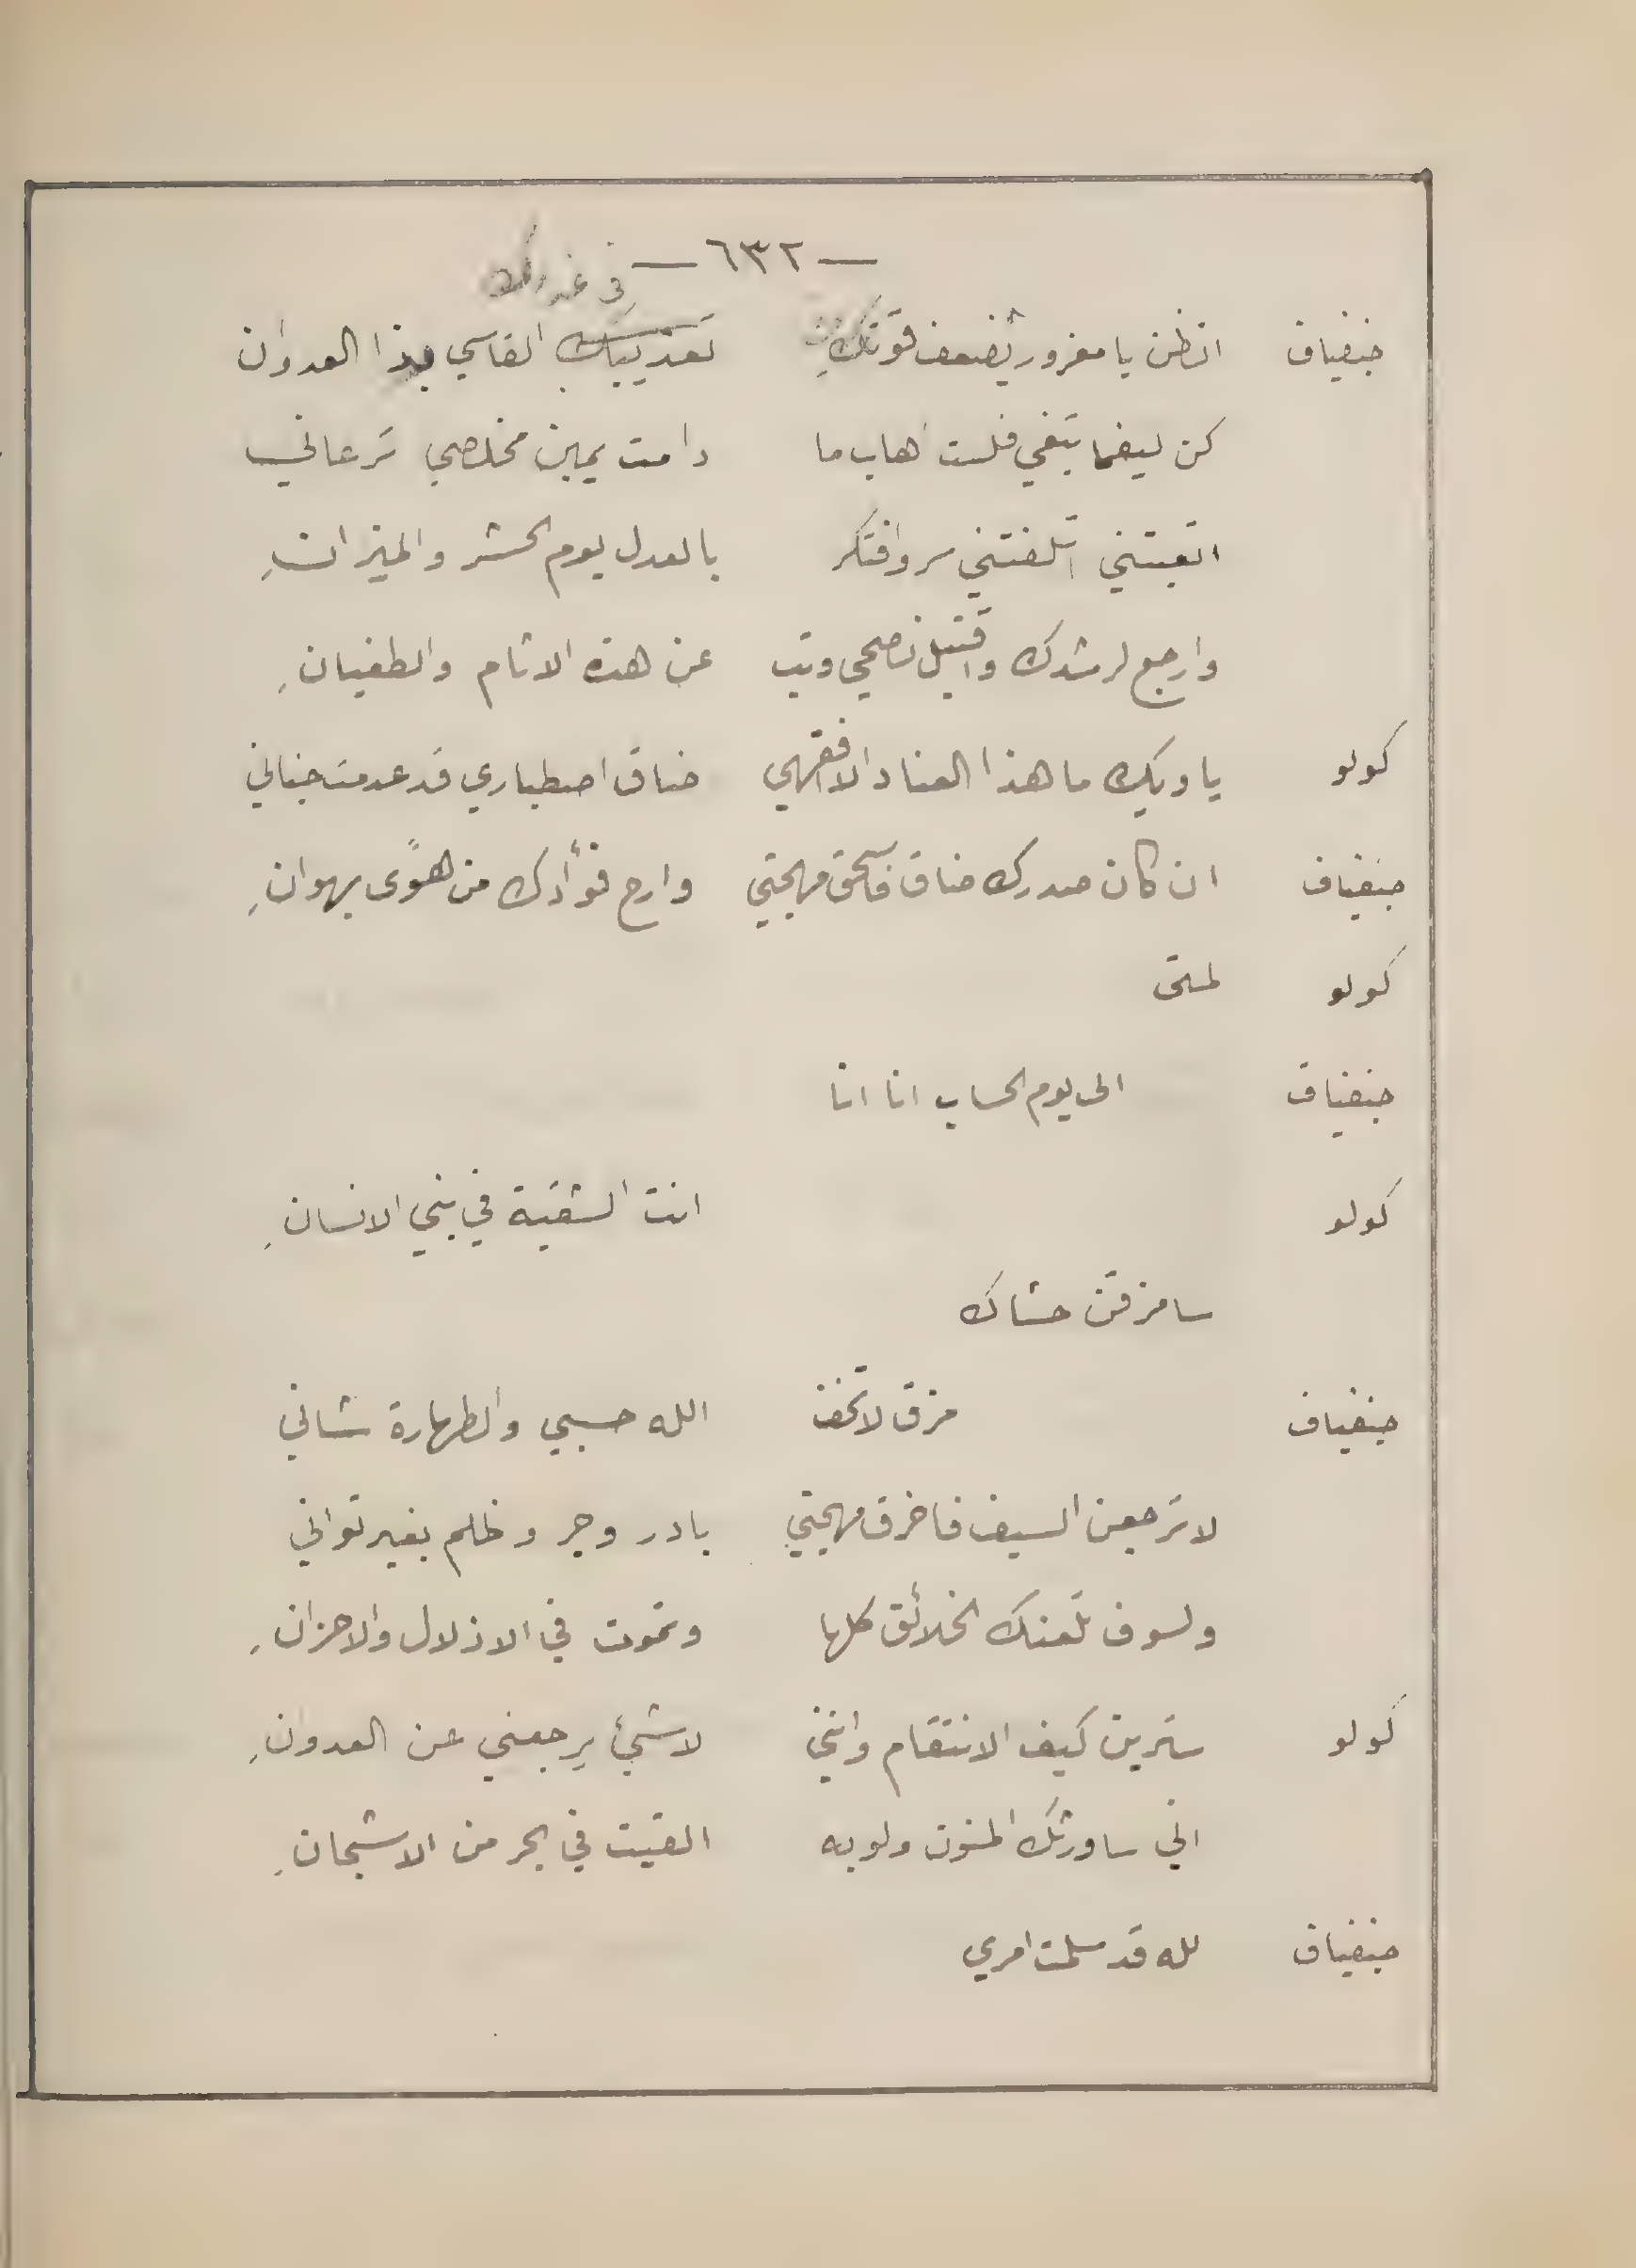 — ٦٣٢ —
في غدرك
جنفياف اتظن يا مغرور يضعف قوتك تعذيبك القاسي بذا العدوان
كن كيفما تبغي فلست اهاب ما دامت يمين مخلصي ترعاني
اتعبتني اتلفتني سر وافتكر بالعدل يوم الحشر والميزانِ
وارجع لرشدك واقتبل نصحي وتب عن هذه الاثام والطغيانِ
كولو يا ويك ما هذا العناد الا افقهي ضاق اصطباري قد عدمت جناني
جنفياف ان كان صدرك ضاق فاسحق مهجتي وارح فؤادك من هوًى بهوانِ
كولو لمتى
جنفياف الى يوم الحساب انا انا
كولو انت الشقية في بني الانسانِ
سامزقن حشاك
جنفياف مزق لا تخف الله حسبي والطهارة شاني
لا ترجعن السيف فاخرق مهجتي بادر وجر وظلم بغير تواني
ولسوف تلعنك الخلائق كلها وتموت في الاذلال والاحزانِ
كولو سترين كيف الانتقام وانني لا شيئ يرجعني عن العدوانِ
اني ساورثك المنون ولو به القيت في بحر من الاشجانِ
جنفياف لله قد سلمت امري